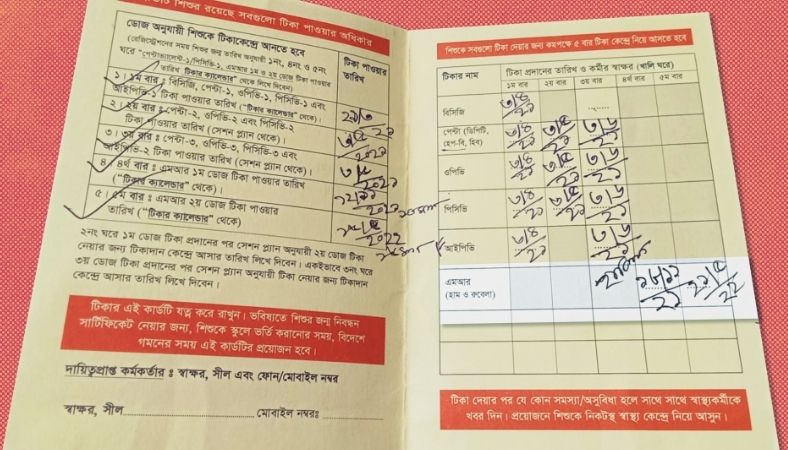 শিশুর রয়েছে সবগুলো টিকা পাওয়ার অধিকার
ডোজ অনুযায়ী শিশুকে টিকাকেন্দ্রে আনতে হবে
(রেজিস্ট্রেশনের সময় শিশুর জন্ম তারিখ অনুযায়ী ১নং, ৪নং ও ৫নং
ঘরে "পেন্টাভ্যালেন্ট-১/পিসিভি-১, এমআর ১ম ও ২য় ডোজ টিকা পাওয়ার
তারিখ টিকার ক্যালেন্ডার" থেকে লিখে দিবেন)
টিকা পাওয়ার
তারিখ
১। ১ম বার : বিসিজি, পেন্টা-১, ওপিভি-১, পিসিভি-১ এবং
আইপিভি-১ টিকা পাওয়ার তারিখ ("টিকার ক্যালেন্ডার" থেকে)।
২। ২য় বার : পেন্টা-২, ওপিভি-২ এবং পিসিভি-২
টিকা পাওয়ার তারিখ (সেশন প্ল্যান থেকে)।
৩। ৩য় বার : পেন্টা-৩, ওপিভি-৩, পিসিভি-৩ এবং
আইপিভি-২ টিকা পাওয়ার তারিখ (সেশন প্ল্যান থেকে)।
৪। ৪র্থ বার : এমআর ১ম ডোজ টিকা পাওয়ার তারিখ
("টিকার ক্যালেন্ডার" থেকে)।
৫। ৫ম বার : এমআর ২য় ডোজ টিকা পাওয়ার
তারিখ ("টিকার ক্যালেন্ডার" থেকে)
২০২১
২০২২
২নং ঘরে ১ম ডোজ টিকা প্রদানের পর সেশন প্ল্যান অনুযায়ী ২য় ডোজ টিকা
নেয়ার জন্য টিকাদান কেন্দ্রে আসার তারিখ লিখে দিবেন। একইভাবে ৩নং ঘরে
৩য় ডোজ টিকা প্রদানের পর সেশন প্ল্যান অনুযায়ী টিকা নেয়ার জন্য টিকাদান
কেন্দ্রে আসার তারিখ লিখে দিবেন।
টিকার এই কার্ডটি যত্ন করে রাখুন। ভবিষ্যতে শিশুর জন্ম নিবন্ধন
সার্টিফিকেট নেয়ার জন্য, শিশুকে স্কুলে ভর্তি করানোর সময়, বিদেশে
গমনের সময় এই কার্ডটির প্রয়োজন হবে।
দায়িত্বপ্রাপ্ত কর্মকর্তার : স্বাক্ষর, সীল এবং ফোন/মোবাইল নম্বর
স্বাক্ষর, সীল মোবাইল নম্বরঃ
শিশুকে সবগুলো টিকা দেয়ার জন্য কমপক্ষে ৫ বার টিকা কেন্দ্রে নিয়ে আসতে হবে
টিকার নাম
টিকা প্রদানের তারিখ ও কর্মীর স্বাক্ষর (খালি ঘরে)
১ম বার ২য় বার ৩য় বার ৪র্থ বার ৫ম বার
বিসিজি ৩/৪/২১
পেন্টা (ডিপিটি,
হেপ-বি, হিব) ৩/৪/২১ ৩/৫/২১ ৩/৬/২১
ওপিভি ৩/৪/২১ ৩/৫/২১ ৩/৬/২১
পিসিভি ৩/৪/২১ ৩/৫/২১ ৩/৬/২১
আইপিভি ৩/৪/২১ ৩/৬/২১
এমআর
(হাম ও রুবেলা)
টিকা দেয়ার পর যে কোন সমস্যা/অসুবিধা হলে সাথে সাথে স্বাস্থ্যকর্মীকে
খবর দিন। প্রয়োজনে শিশুকে নিকটস্থ স্বাস্থ্য কেন্দ্রে নিয়ে আসুন।